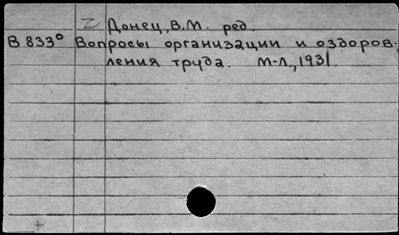 Донец, В.М. ред.
В 833° Вопросы организации и оздоров-
ления труда. М-Л., 1931.